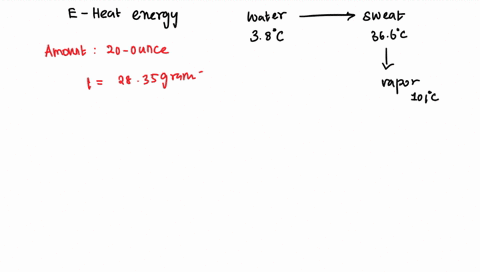 E - Heat energy
water → sweat
3.8°C 36.6°C
↓
Amount : 20-ounce
1 = 28.35gram
vapor
101°C